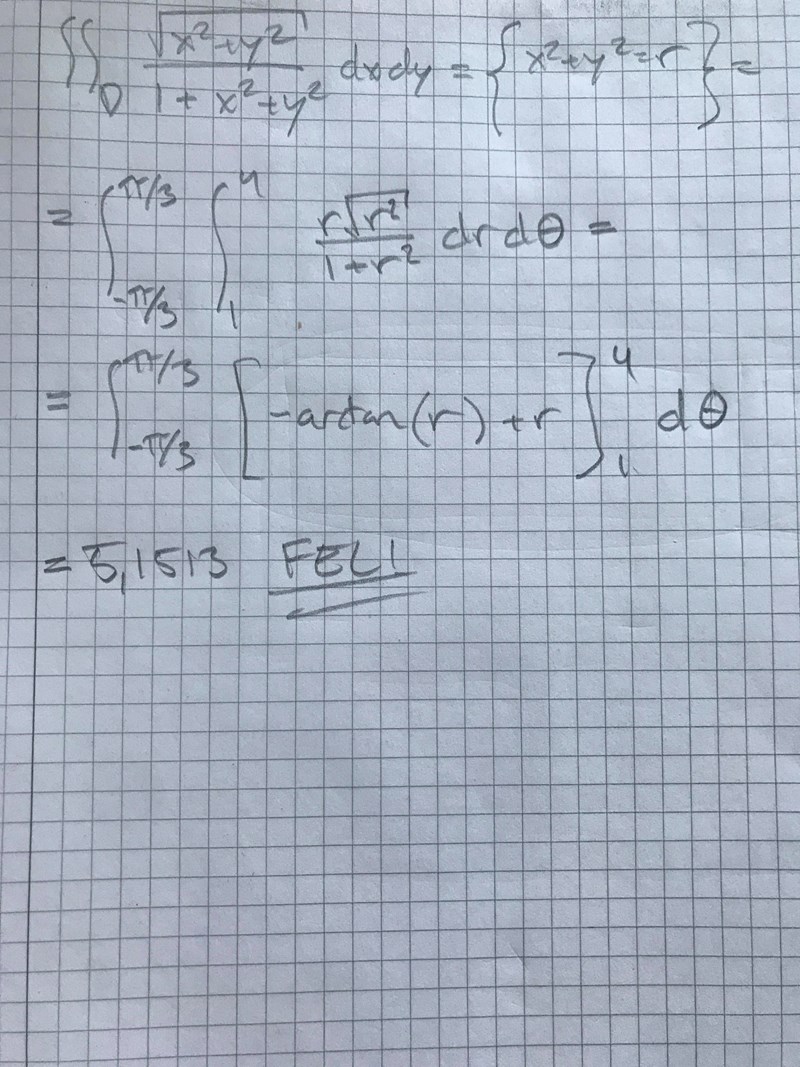 ∬_D √(x²+y²) / (1 + x²+y²) dxdy = { x²+y²=r } =
= ∫_{-π/3}^{π/3} ∫_1^4 r√(r²) / (1+r²) dr dθ =
= ∫_{-π/3}^{π/3} [ -arctan(r) + r ]_1^4 dθ
= 5,1513 FEL!